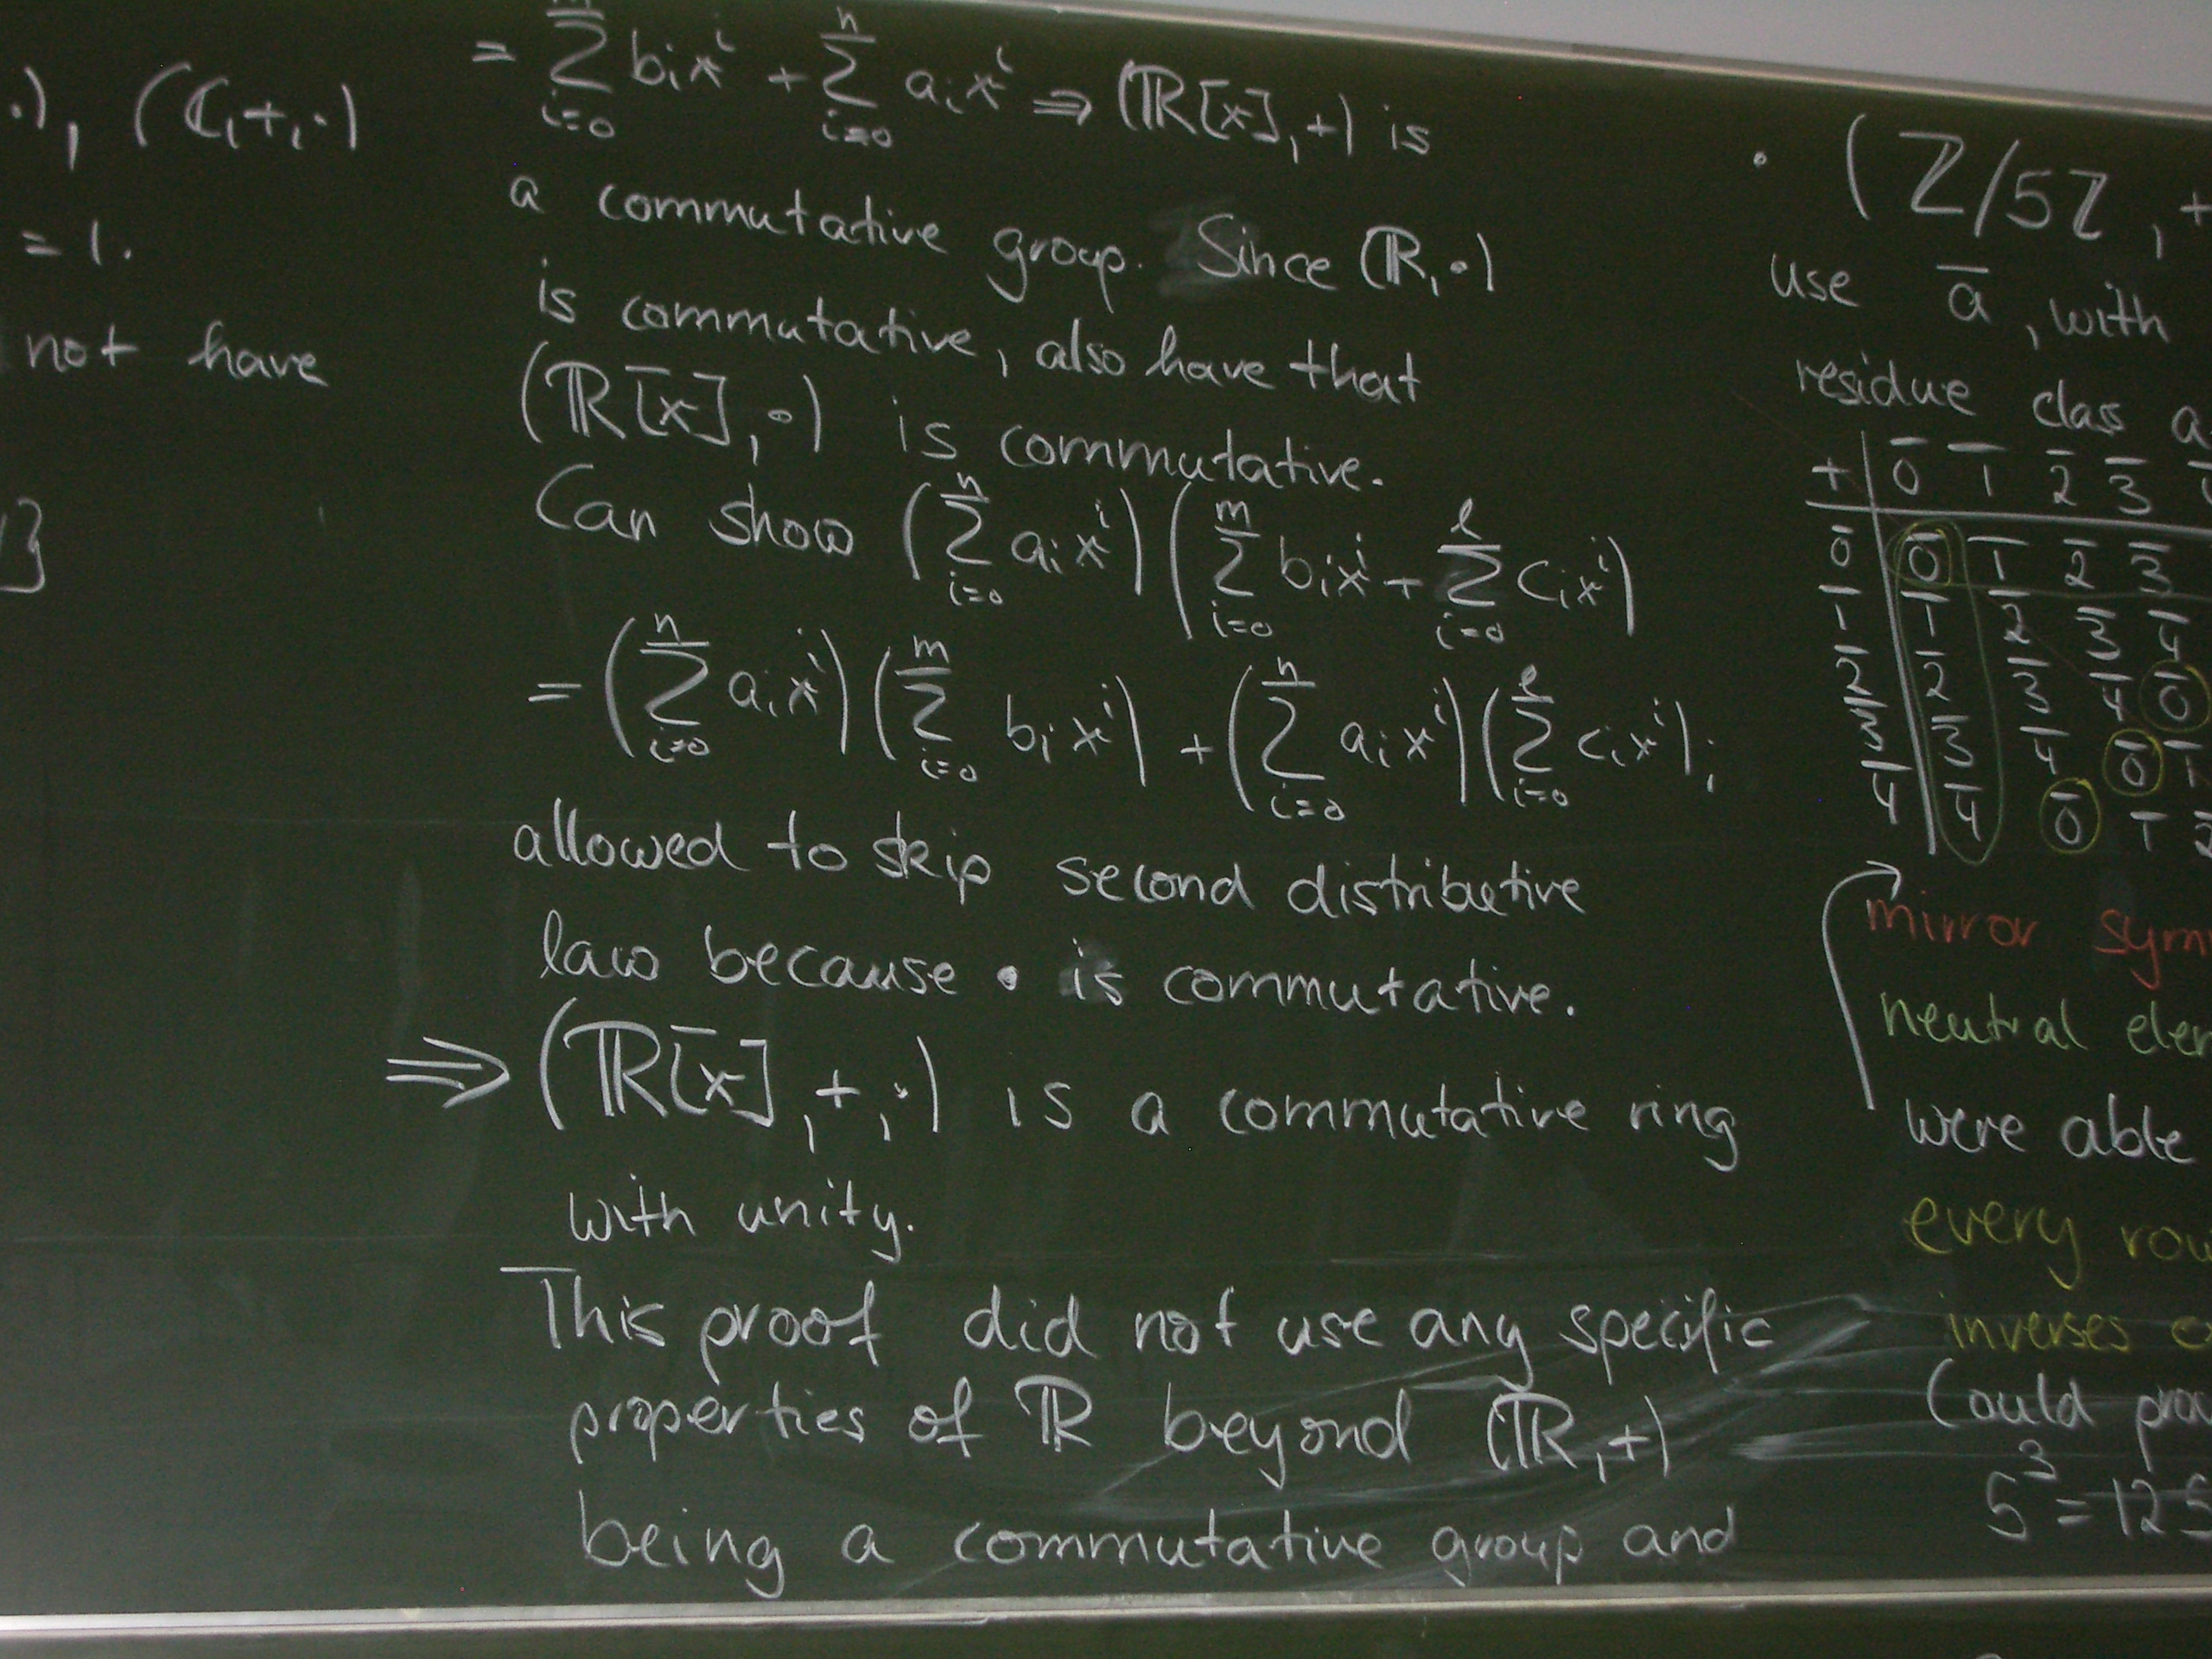 ·), (ℂ,+,·)
= 1.
not have
}
= ∑_{i=0}^{m} b_i x^i + ∑_{i=0}^{n} a_i x^i ⇒ (ℝ[x],+) is
a commutative group. Since (ℝ,·)
is commutative, also have that
(ℝ[x],·) is commutative.
Can show (∑_{i=0}^{n} a_i x^i)(∑_{i=0}^{m} b_i x^i + ∑_{i=0}^{l} c_i x^i)
= (∑_{i=0}^{n} a_i x^i)(∑_{i=0}^{m} b_i x^i) + (∑_{i=0}^{n} a_i x^i)(∑_{i=0}^{l} c_i x^i);
allowed to skip second distributive
law because · is commutative.
⇒ (ℝ[x],+,·) is a commutative ring
with unity.
This proof did not use any specific
properties of ℝ beyond (ℝ,+)
being a commutative group and
· (ℤ/5ℤ, +
use a̅, with
residue class a
+ | 0̅ 1̅ 2̅ 3̅
0̅ | 0̅ 1̅ 2̅ 3̅
1̅ | 1̅ 2̅ 3̅ 4̅
2̅ | 2̅ 3̅ 4̅ 0̅
3̅ | 3̅ 4̅ 0̅ 1̅
4̅ | 4̅ 0̅ 1̅ 2̅
mirror sym
neutral ele
were able
every row
inverses e
Could prov
5³ = 125